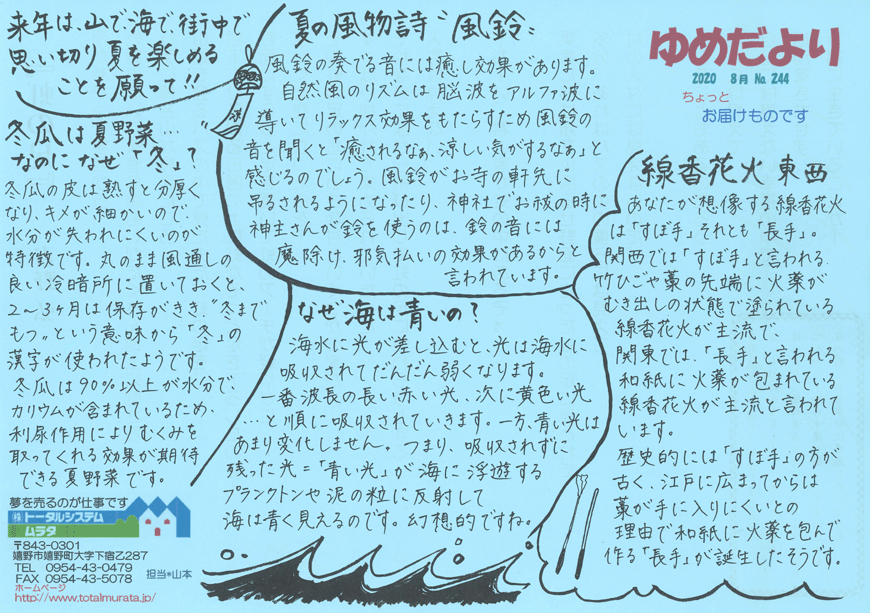 ゆめだより
2020 8月 No.244
ちょっと
お届けものです
来年は、山で、海で、街中で
思い切り夏を楽しめる
ことを願って!!
夏の風物詩"風鈴"
風鈴の奏でる音には癒し効果があります。
自然風のリズムは脳波をアルファ波に
導いてリラックス効果をもたらすため風鈴の
音を聞くと「癒されるなぁ、涼しい気がするなぁ」と
感じるのでしょう。風鈴がお寺の軒先に
吊るされるようになったり、神社でお祓の時に
神主さんが鈴を使うのは、鈴の音には
魔除け、邪気払いの効果があるからと
言われています。
冬瓜は夏野菜…
なのになぜ「冬」?
冬瓜の皮は熟すと分厚く
なり、キメが細かいので、
水分が失われにくいのが
特徴です。丸のまま風通しの
良い冷暗所に置いておくと、
2~3ヶ月は保存がきき、"冬まで
もつ"という意味から「冬」の
漢字が使われたようです。
冬瓜は90%以上が水分で、
カリウムが含まれているため、
利尿作用によりむくみを
取ってくれる効果が期待
できる夏野菜です。
なぜ海は青いの?
海水に光が差し込むと、光は海水に
吸収されてだんだん弱くなります。
一番波長の長い赤い光、次に黄色い光
…と順に吸収されていきます。一方、青い光は
あまり変化しません。つまり、吸収されずに
残った光=「青い光」が海に浮遊する
プランクトンや泥の粒に反射して
海は青く見えるのです。幻想的ですね。
線香花火 東西
あなたが想像する線香花火
は「すぼ手」それとも「長手」。
関西では「すぼ手」と言われる
竹ひごや藁の先端に火薬が
むき出しの状態で塗られている
線香花火が主流で、
関東では、「長手」と言われる
和紙に火薬が包まれている
線香花火が主流と言われて
います。
歴史的には「すぼ手」の方が
古く、江戸に広まってからは
藁が手に入りにくいとの
理由で和紙に火薬を包んで
作る「長手」が誕生したそうです。
夢を売るのが仕事です
㈱トータルシステム
ムラタ
〒843-0301
嬉野市嬉野町大字下宿乙287
TEL 0954-43-0479
FAX 0954-43-5078
担当*山本
ホームページ
http://www.totalmurata.jp/